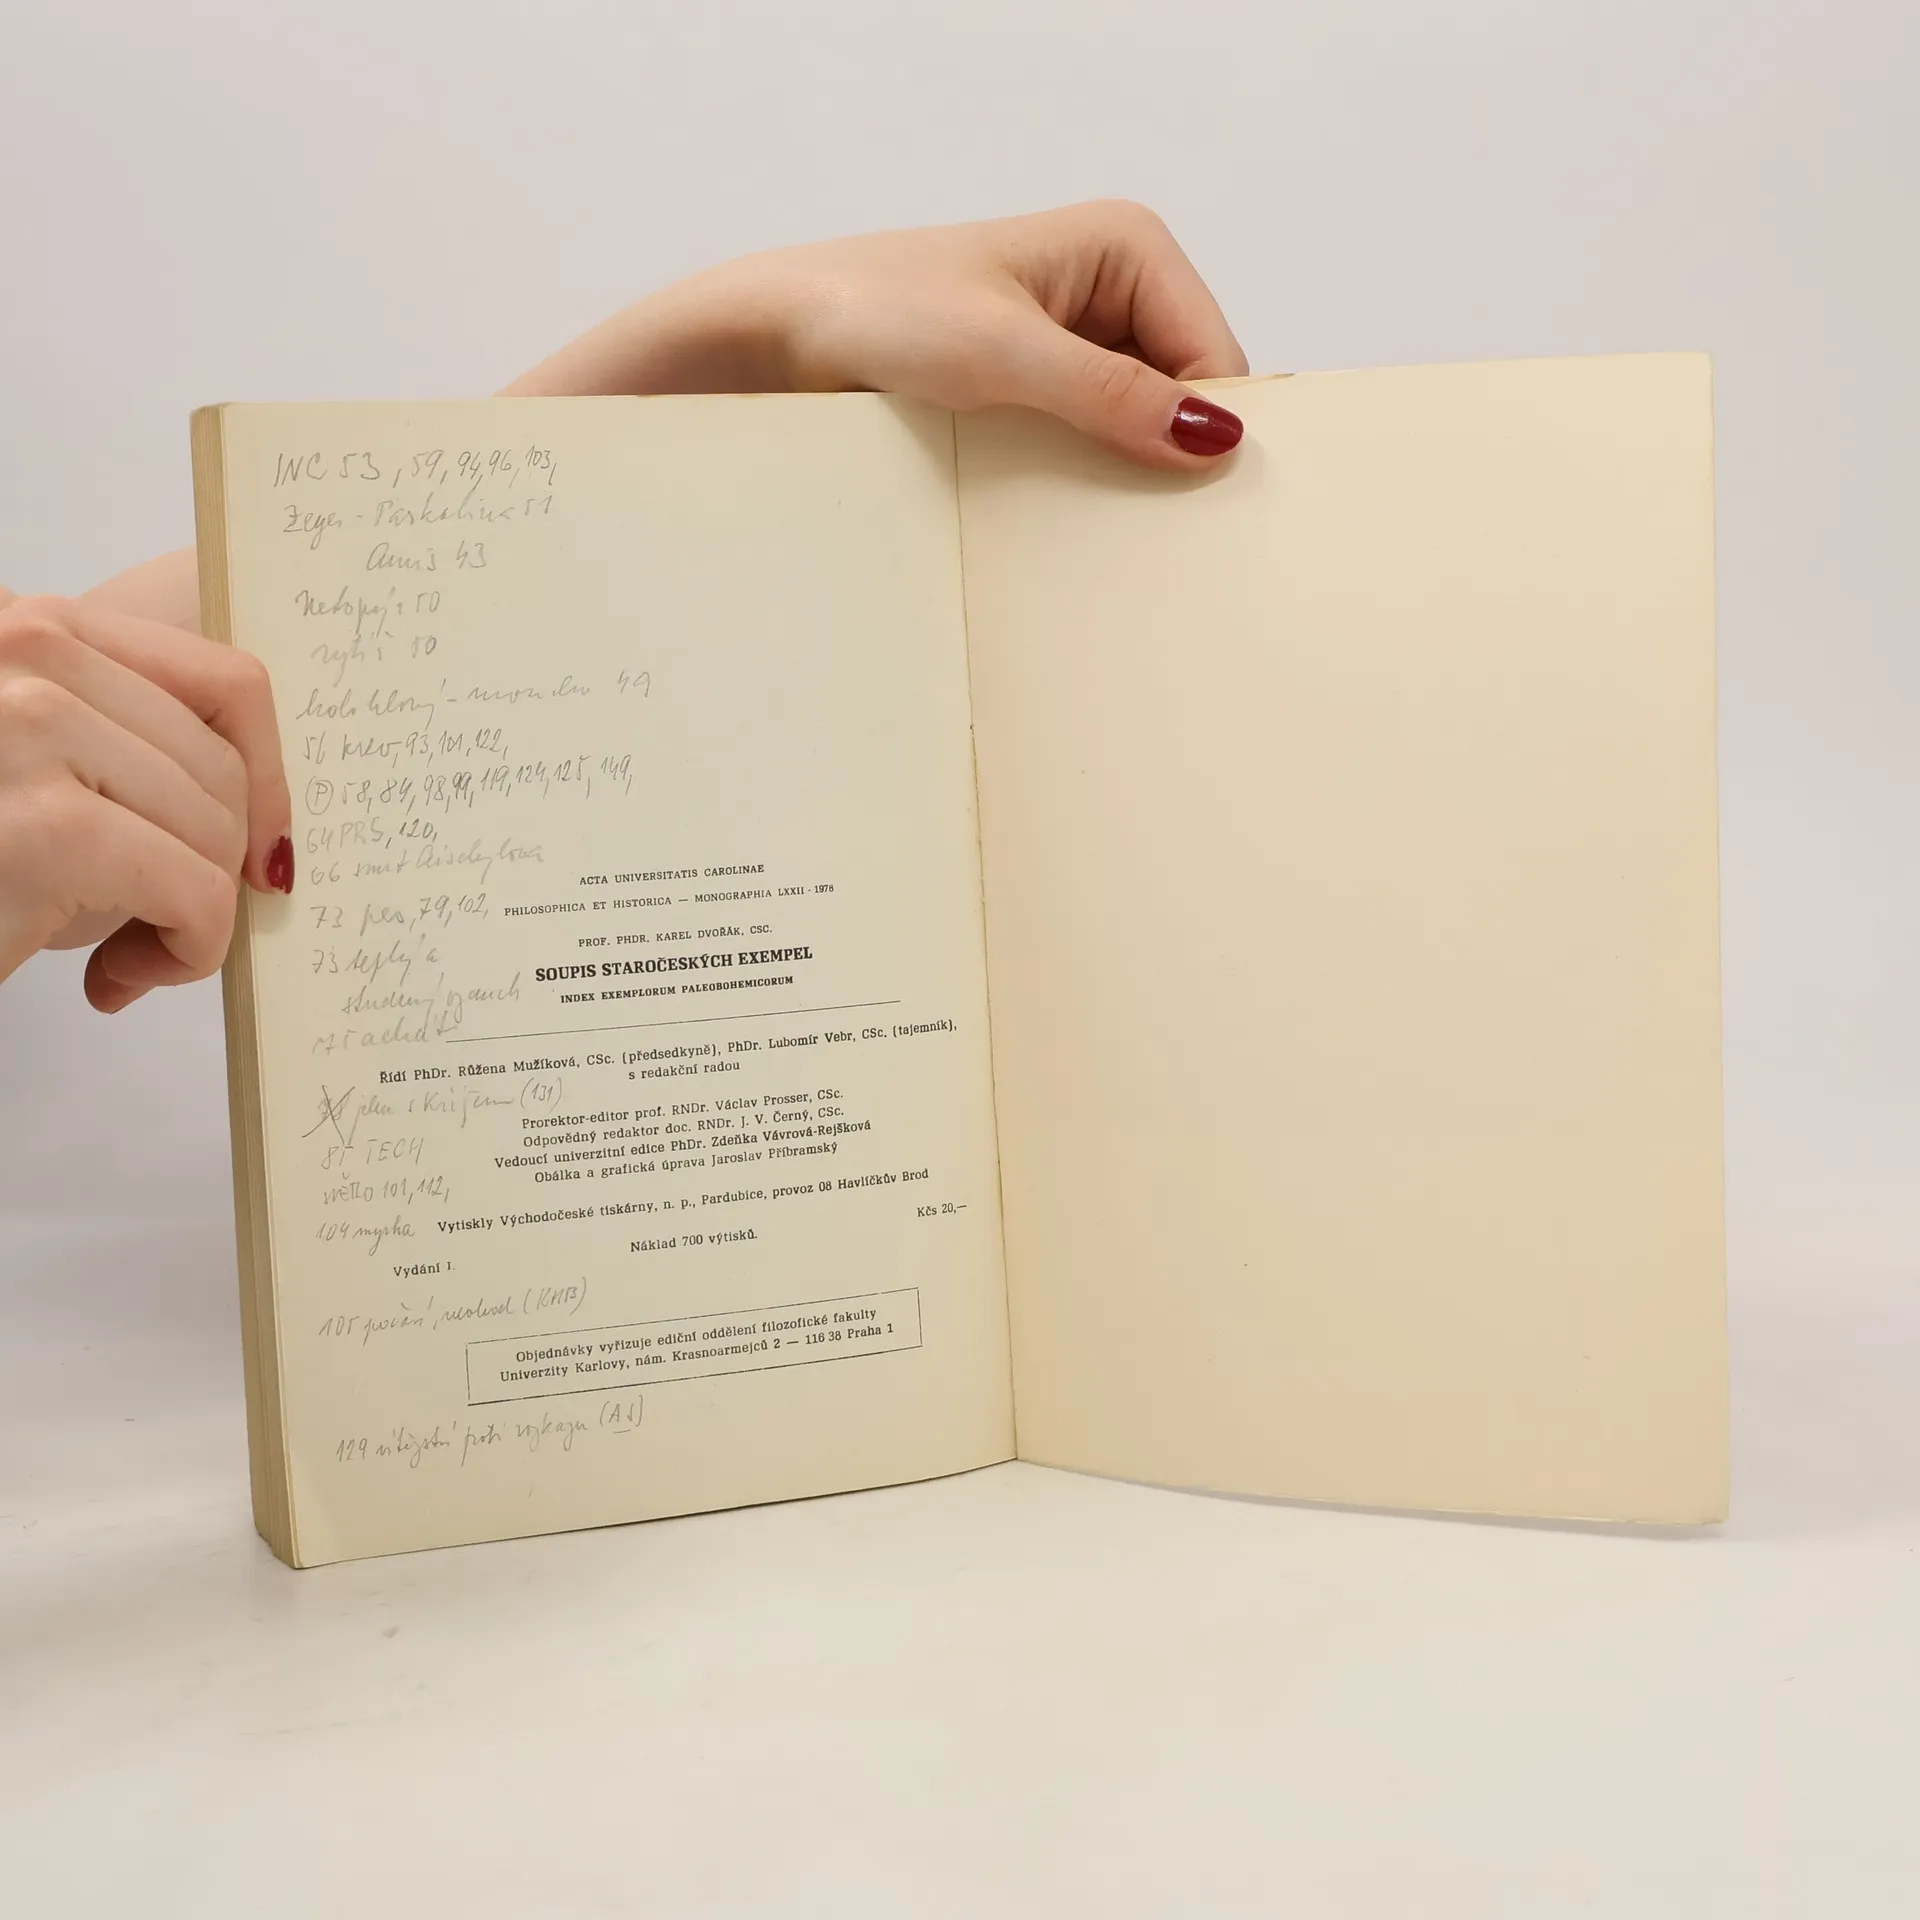 INC 53, 59, 94, 96, 103,
Zeyer - Paskalina 51
Amis 43
Netopýr 50
rytíř 10
49
56 krev, 93, 101, 122,
P 58, 84, 98, 99, 119, 124, 125, 149,
64 PRS, 120,
66 smrt Aischylova
ACTA UNIVERSITATIS CAROLINAE
73 pes, 79, 102,
PHILOSOPHICA ET HISTORICA — MONOGRAPHIA LXXII - 1978
PROF. PHDR. KAREL DVOŘÁK, CSC.
73 teplý a
SOUPIS STAROČESKÝCH EXEMPEL
studený
INDEX EXEMPLORUM PALEOBOHEMICORUM
75 achát
Řídí PhDr. Růžena Mužíková, CSc. (předsedkyně), PhDr. Lubomír Vebr, CSc. (tajemník),
s redakční radou
jelen s křížem (131)
Prorektor-editor prof. RNDr. Václav Prosser, CSc.
Odpovědný redaktor doc. RNDr. J. V. Černý, CSc.
Vedoucí univerzitní edice PhDr. Zdeňka Vávrová-Rejšková
Obálka a grafická úprava Jaroslav Příbramský
TECH
SVĚTLO 101, 112,
104 myrha
Vytiskly Východočeské tiskárny, n. p., Pardubice, provoz 08 Havlíčkův Brod
Kčs 20,—
Náklad 700 výtisků.
Vydání I.
105
Objednávky vyřizuje ediční oddělení filozofické fakulty
Univerzity Karlovy, nám. Krasnoarmejců 2 — 116 38 Praha 1
129 vítězství proti rozkazu (AS)